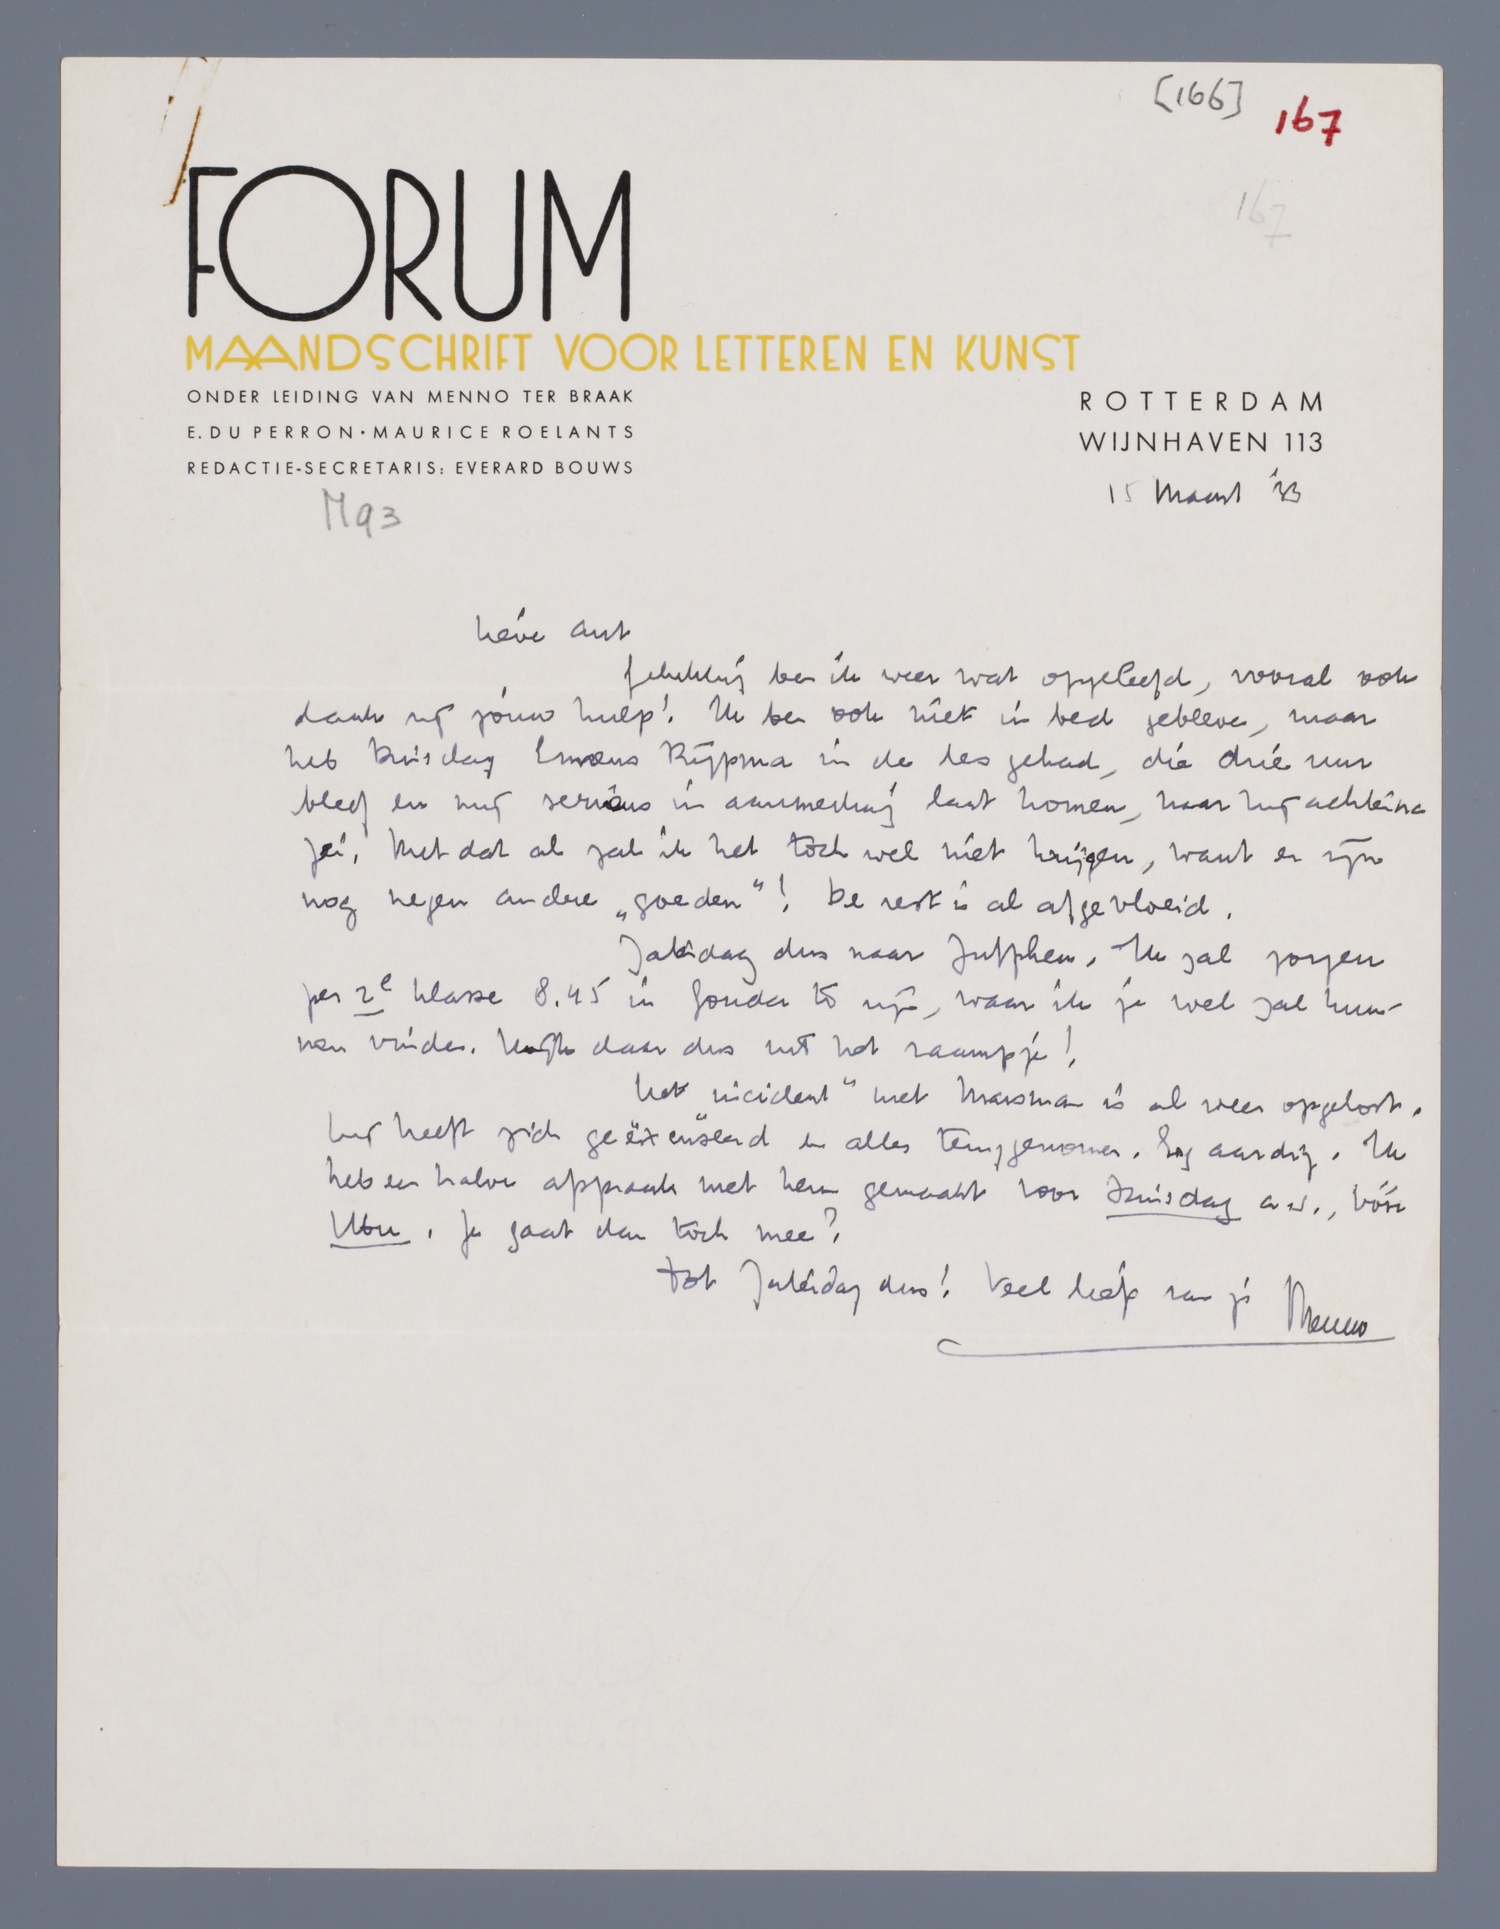 [166] 167
167
FORUM
MAANDSCHRIFT VOOR LETTEREN EN KUNST
ONDER LEIDING VAN MENNO TER BRAAK
E. DU PERRON · MAURICE ROELANTS
REDACTIE-SECRETARIS: EVERARD BOUWS
ROTTERDAM
WIJNHAVEN 113
15 Maart '33
M93
Lieve Ant
Gelukkig ben ik weer wat opgeleefd, vooral ook
dank zij jouw hulp! Ik ben ook niet in bed gebleven, maar
heb Dinsdag Erasmus Rijpma in de les gehad, die drie uur
bleef en mij serieus in aanmerking laat komen, naar hij achteraf
zei. Met dat al zal ik het toch wel niet krijgen, want er zijn
nog negen andere „goeden"! De rest is al afgevloeid.
Zaterdag dus naar Zutphen. Ik zal zorgen
per 2e klasse 8.45 in Gouda te zijn, waar ik je wel zal kun-
nen vinden. Kijk daar dus uit het raampje!
Het „incident" met Marsman is al weer opgelost.
Hij heeft zich geëxcuseerd en alles teruggenomen. Erg aardig. Ik
heb een halve afspraak met hem gemaakt voor Dinsdag a.s., vóór
Ubu. Je gaat dan toch mee?
Tot Zaterdag dus! Veel liefs van je Menno